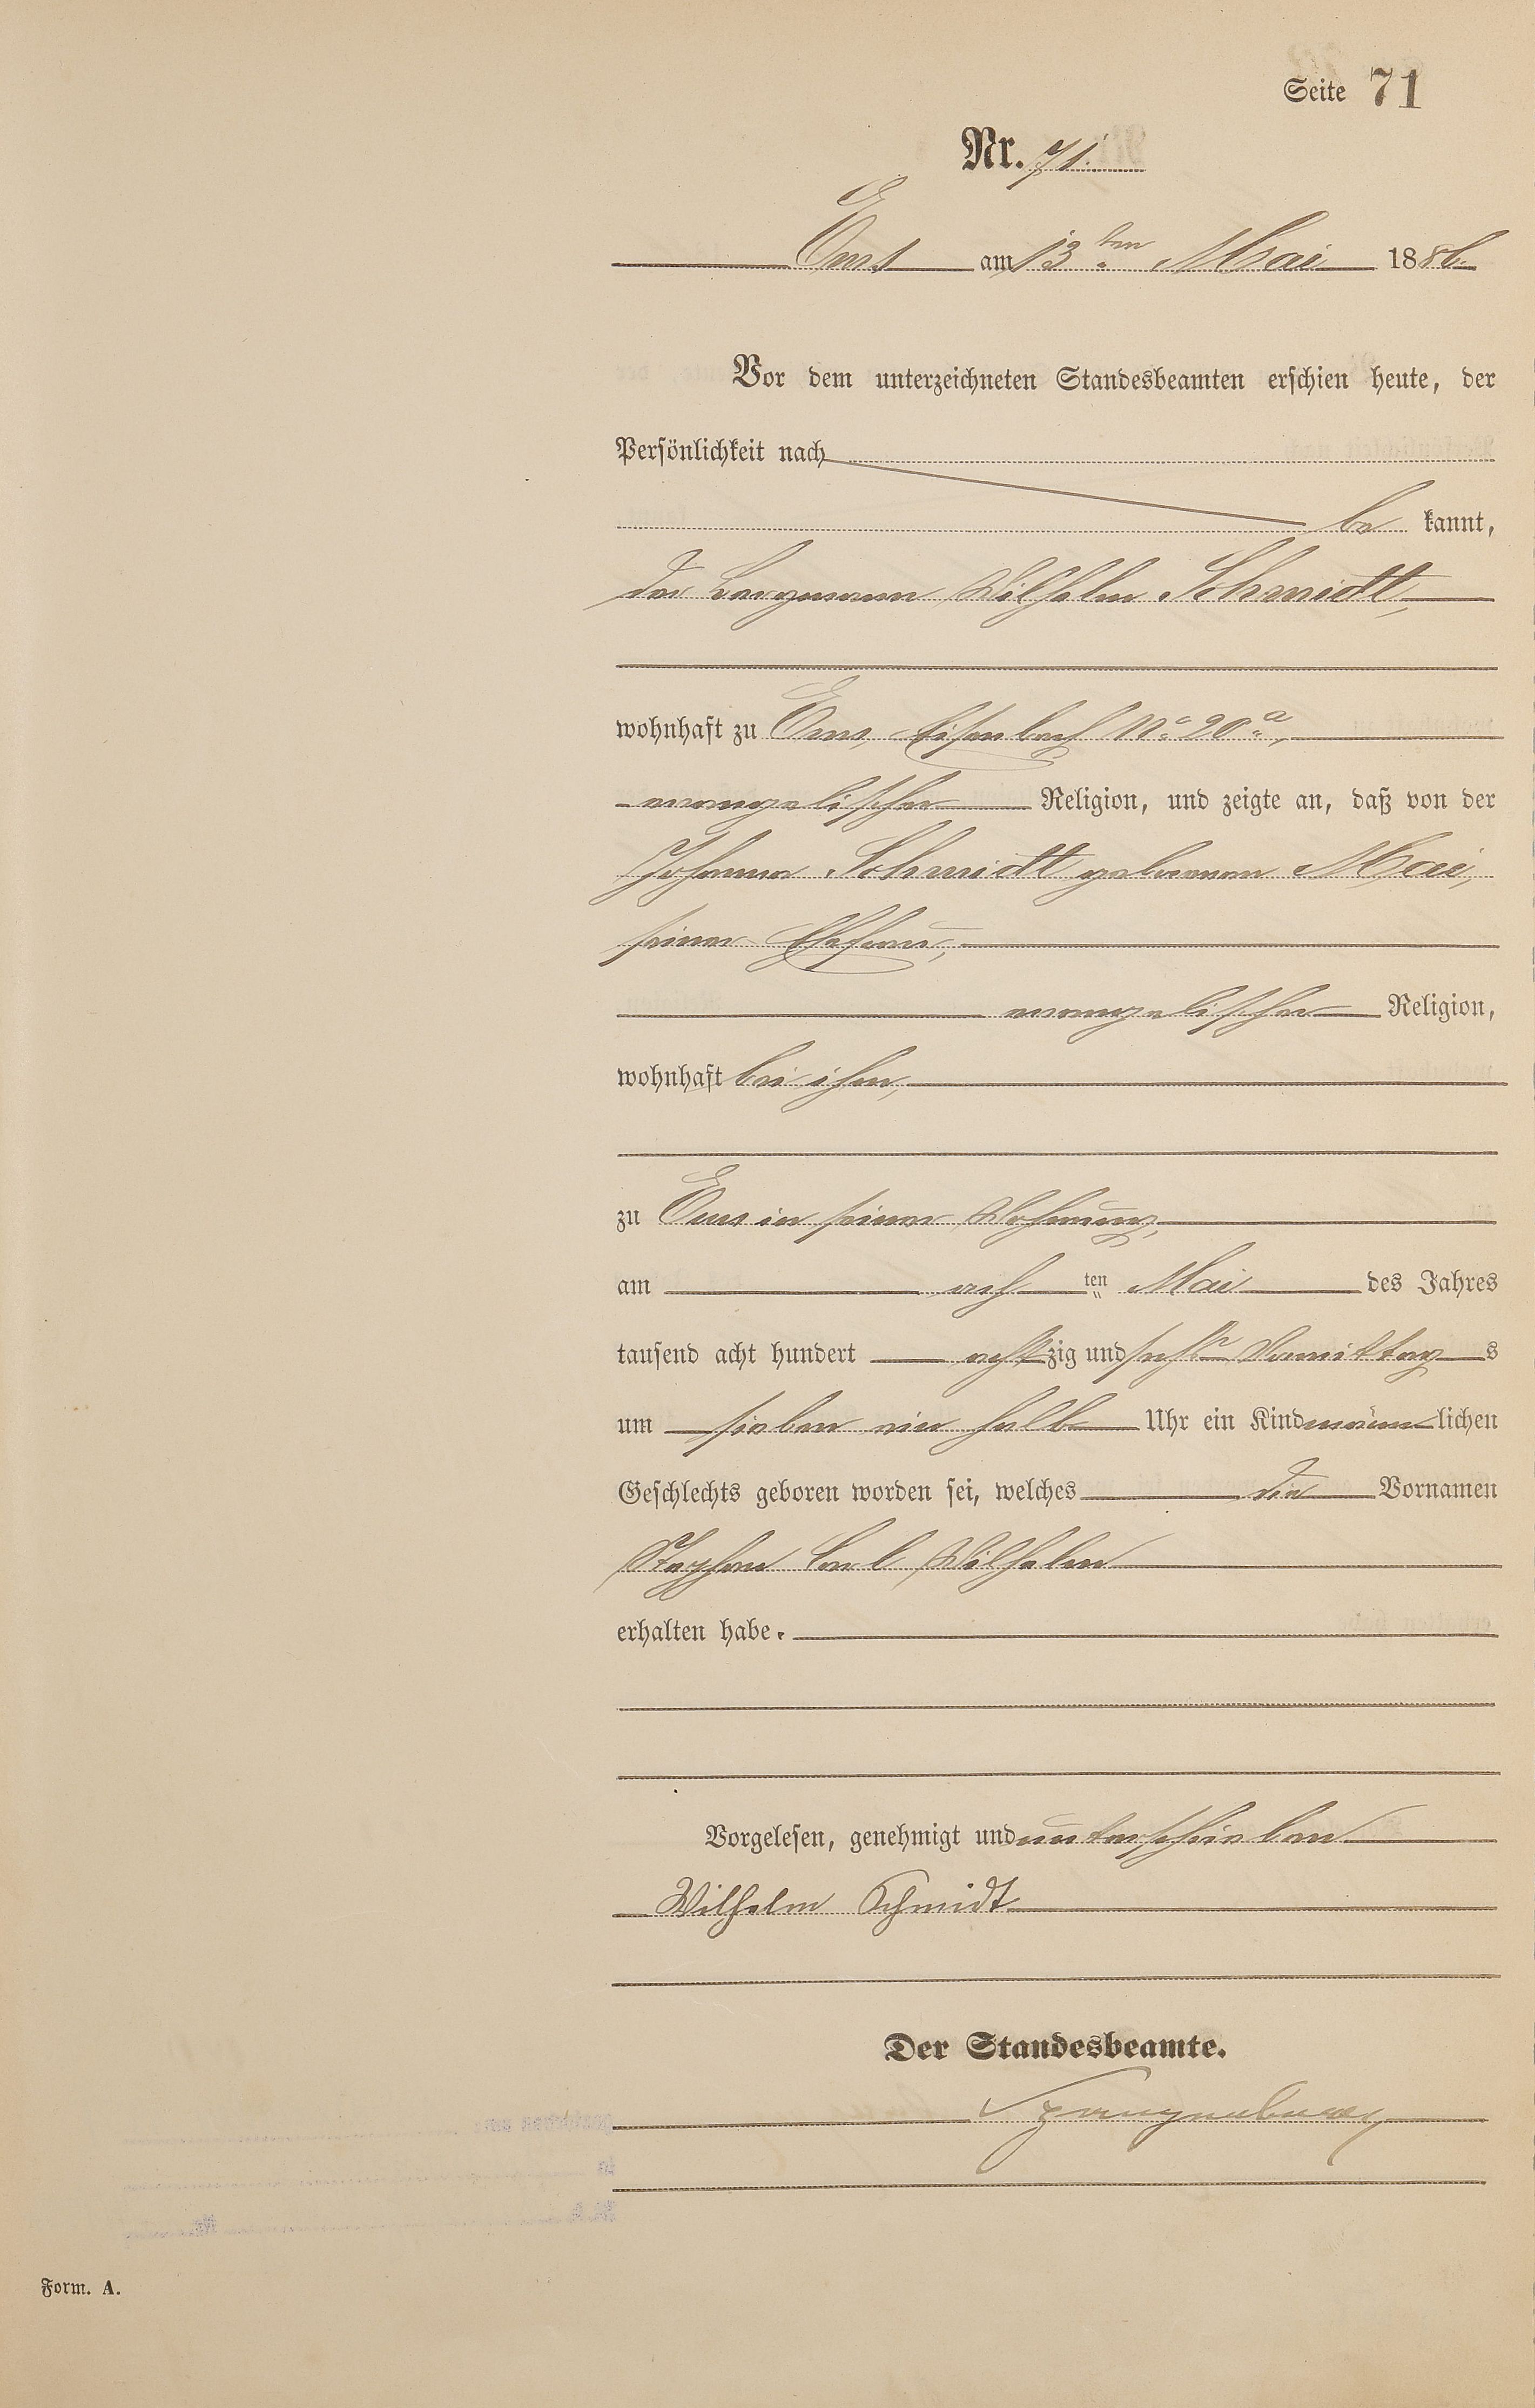 Seite 71
Nr. 71.
Ems am 13ten Mai 1886.
Vor dem unterzeichneten Standesbeamten erschien heute, der
Persönlichkeit nach
be kannt,
der Bergmann Wilhelm Schmidt,
wohnhaft zu Ems, Eisenbach No 20a,
evangelischer Religion, und zeigte an, daß von der
Johanna Schmidt geborenen Mai,
seiner Ehefrau,
evangelischer Religion,
wohnhaft bei ihm,
zu Ems in seiner Wohnung,
am ach ten Mai des Jahres
tausend acht hundert acht zig und sechs Vormittag s
um sieben ein halb Uhr ein Kind männ lichen
Geschlechts geboren worden sei, welches die Vornamen
Stephan Carl Wilhelm
erhalten habe.
Vorgelesen, genehmigt und unterschrieben
Wilhelm Schmidt
Der Standesbeamte.
Form. A.